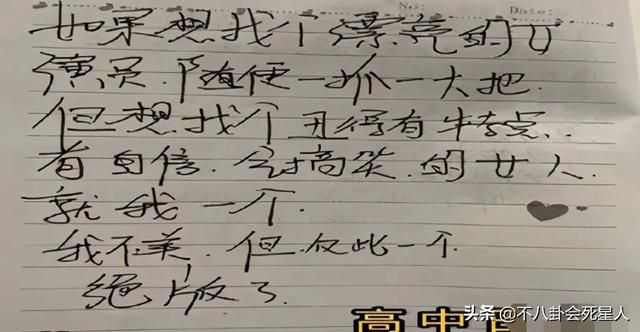 No:
Date:
如果想找个漂亮的女
演员.随便一抓一大把
但想找个丑得有特点.
有自信.会搞笑.的女人.
就我一个.
我不美.但仅此一个.
绝版了.
高中
头条 @不八卦会死星人